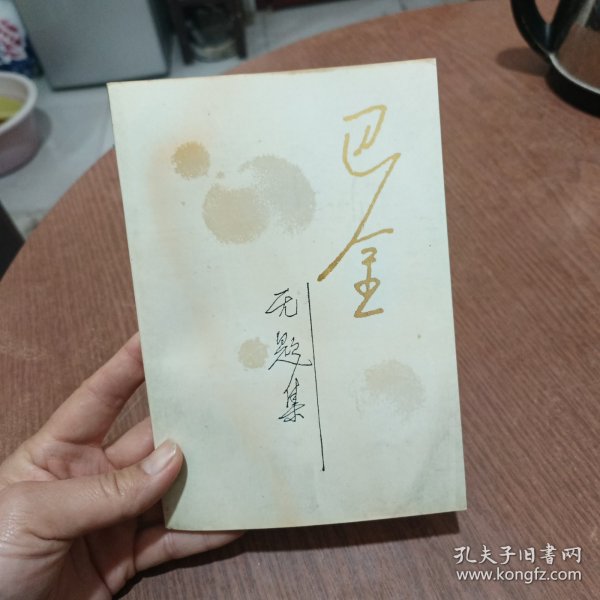 巴金
无题集
孔夫子旧书网
www.kongfz.com